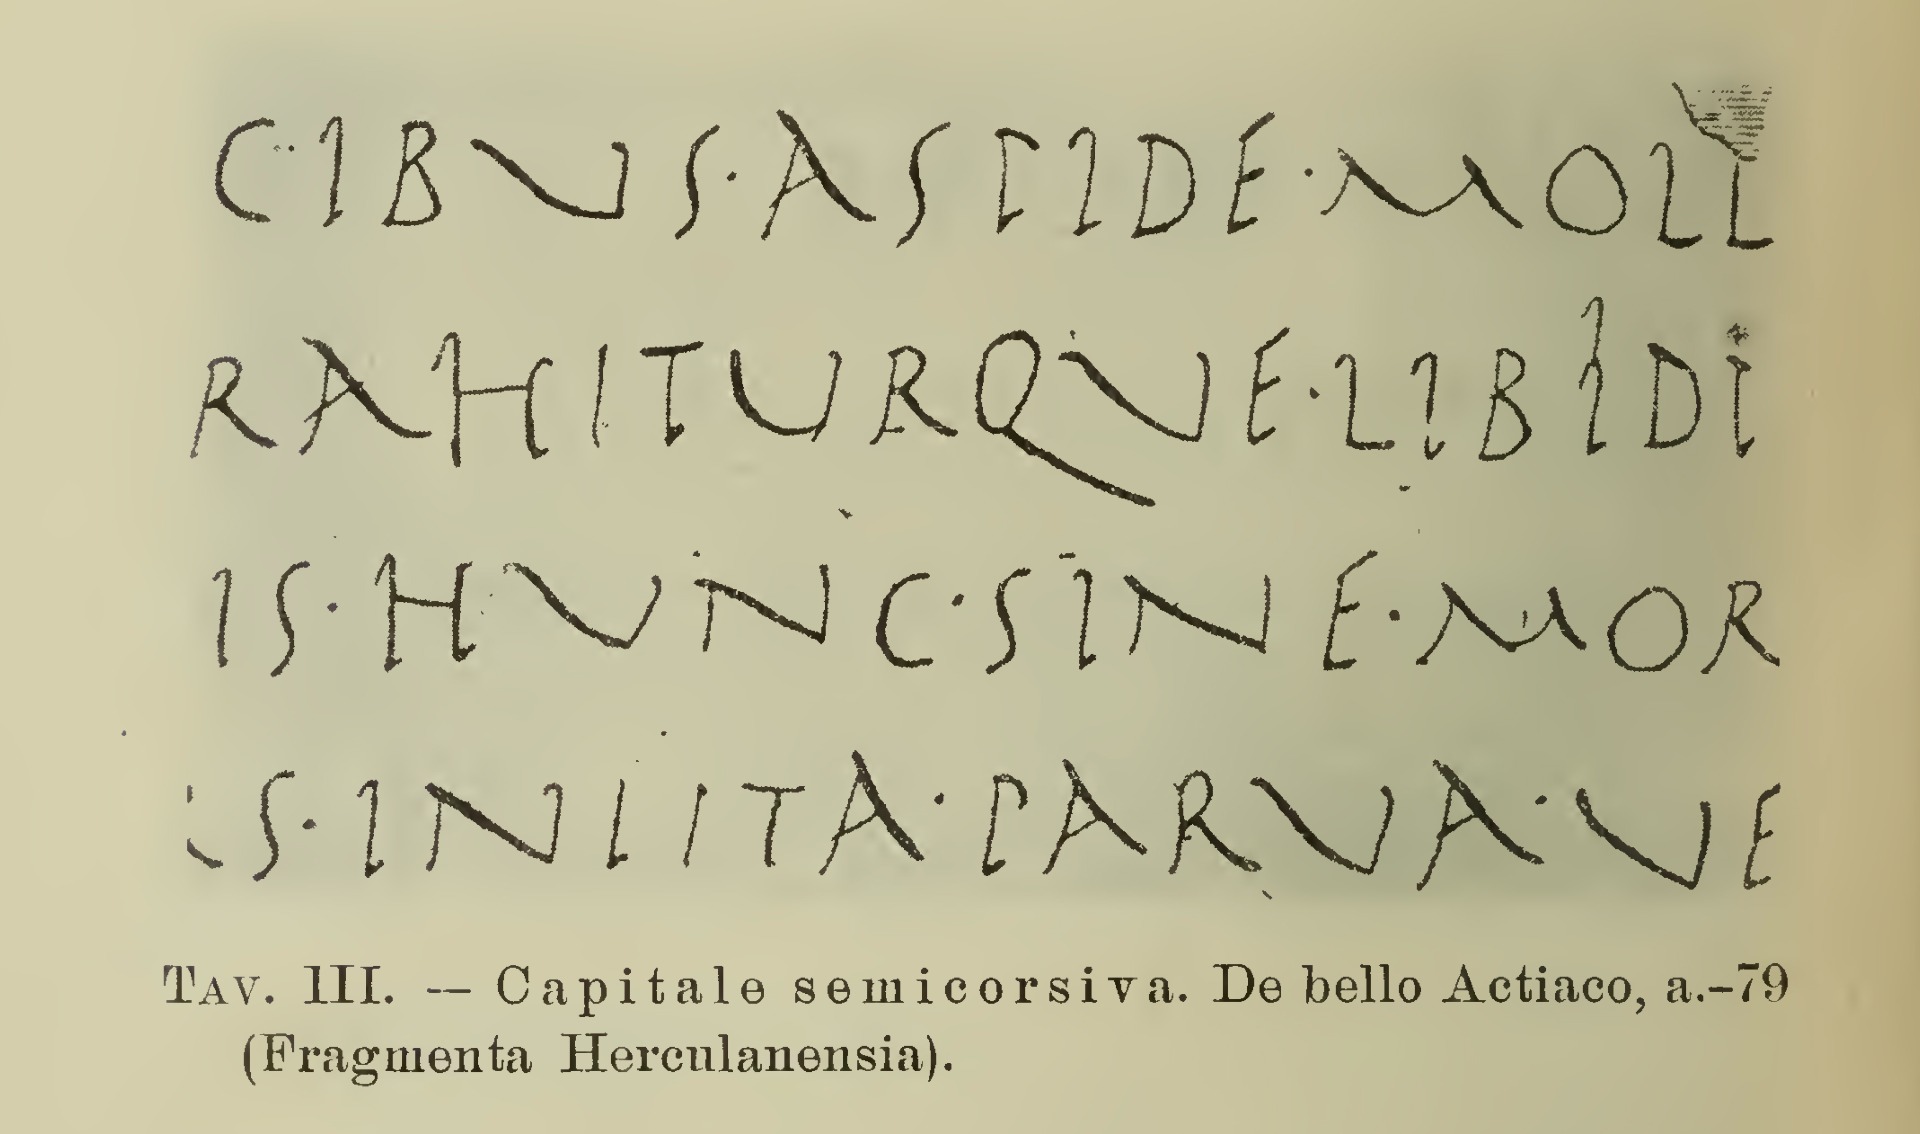 C·IBUS·ASPIDE·MOLL
RAHITURQUE·LIBIDI
IS·HUNC·SINE·MOR
S·INLITA·PARUA·UE
TAV. III. — Capitale semicorsiva. De bello Actiaco, a.-79
(Fragmenta Herculanensia).